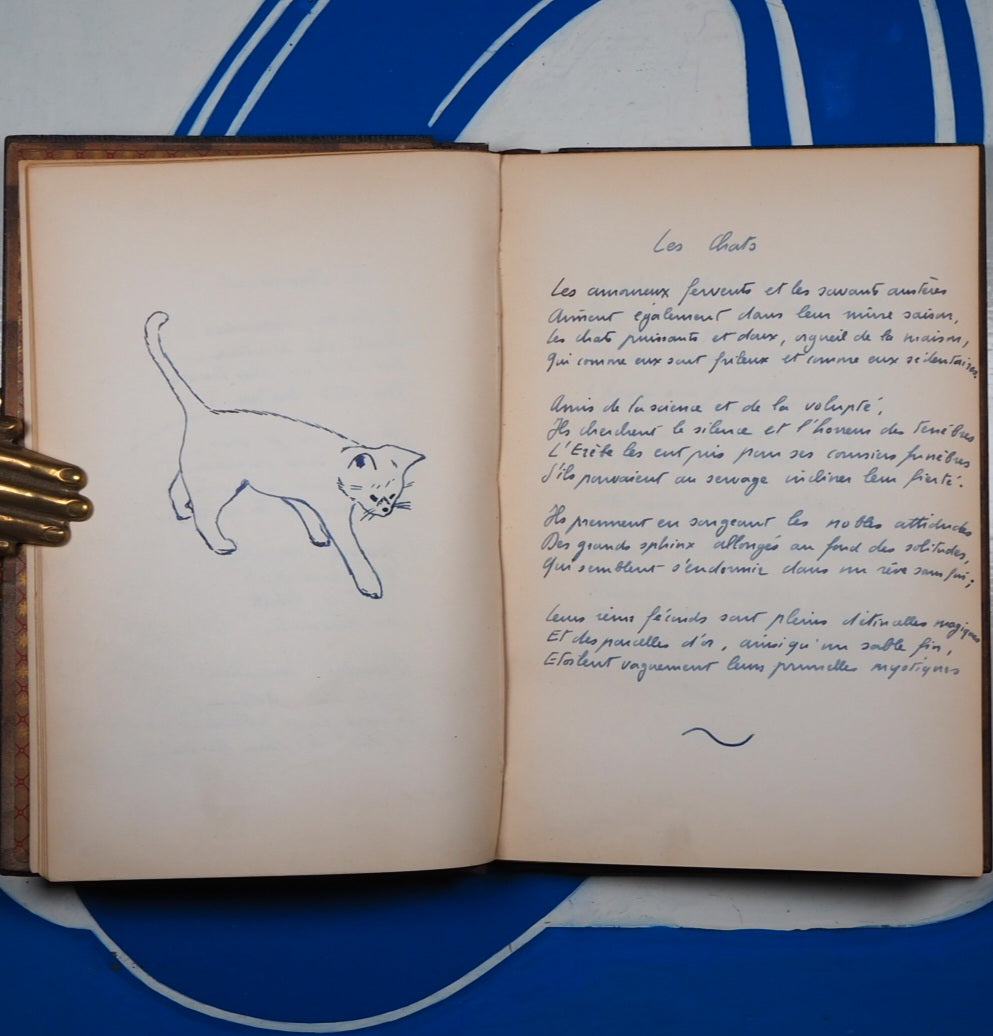 Les Chats
Les amoureux fervents et les savants austères
Aiment également dans leur mûre saison,
Les chats puissants et doux, orgueil de la maison,
Qui comme eux sont frileux et comme eux sédentaires.
Amis de la science et de la volupté,
Ils cherchent le silence et l'horreur des ténèbres
L'Erèbe les eut pris pour ses coursiers funèbres
S'ils pouvaient au servage incliner leur fierté.
Ils prennent en songeant les nobles attitudes
Des grands sphinx allongés au fond des solitudes,
Qui semblent s'endormir dans un rêve sans fin ;
Leurs reins féconds sont pleins d'étincelles magiques
Et des parcelles d'or, ainsi qu'un sable fin,
Etoilent vaguement leurs prunelles mystiques